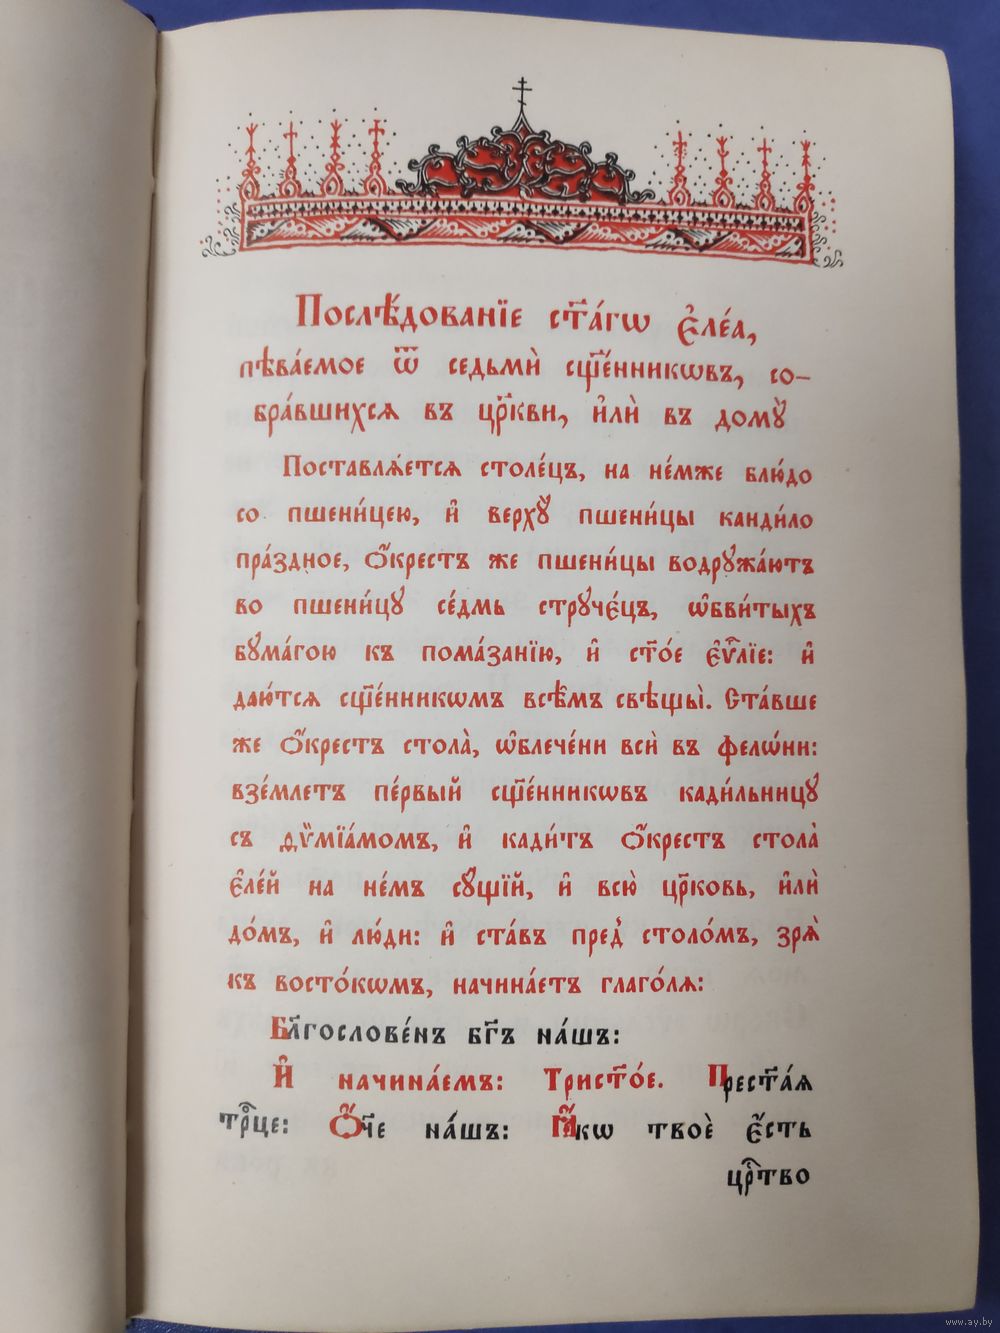 Послѣ́дованїе ст҃а́гѡ є҆ле́а,
пѣва́емое ѿ седьмѝ сщ҃е́нникѡвъ, со-
бра́вшихсѧ въ цр҃кви, и҆лѝ въ домꙋ̀
Поставлѧ́етсѧ столе́цъ, на не́мже блю́до
со пшени́цею, и҆ верхꙋ̀ пшени́цы канди́ло
пра́здное, ѻ҆́крестъ же пшени́цы водрꙋжа́ютъ
во пшени́цꙋ се́дмь стрꙋче́цъ, ѡ҆бви́тыхъ
бꙋма́гою къ пома́занїю, и҆ ст҃о́е є҆ѵⷢ҇лїе: и҆
даю́тсѧ сщ҃е́нникѡмъ всѣ̑мъ свѣщы̀. Ста́вше
же ѻ҆́крестъ стола̀, ѡ҆блече́ни всѝ въ фелѡ́ни:
взе́млетъ пе́рвый сщ҃е́нникѡвъ кади́льницꙋ
съ ѳѷмїа́момъ, и҆ кади́тъ ѻ҆́крестъ стола̀
є҆ле́й на не́мъ сꙋ́щїй, и҆ всю̀ цр҃ковь, и҆лѝ
до́мъ, и҆ лю́ди: и҆ ста́въ пред̾ столо́мъ, зрѧ̀
къ восто́кѡмъ, начина́етъ глаго́лѧ:
Бл҃гослове́нъ бг҃ъ на́шъ:
И҆ начина́емъ: Трист҃о́е. Прест҃а́ѧ
трⷪ҇це: Ѻ҆́ч҃е на́шъ: Ꙗ҆́кѡ твоѐ є҆́сть
црⷭ҇тво
www.ay.by